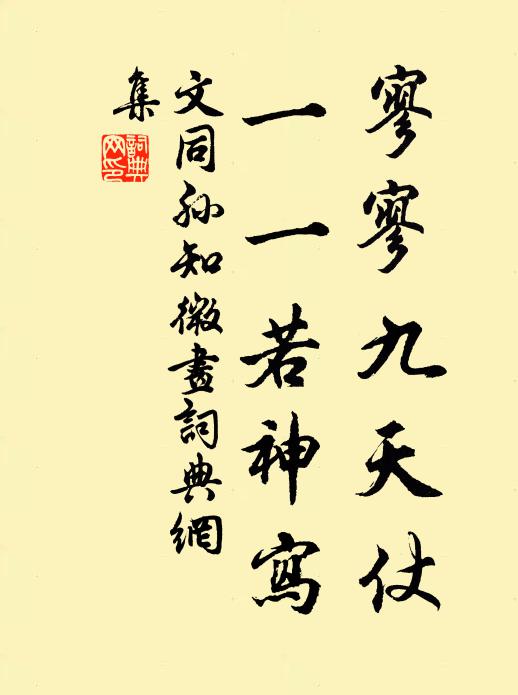 寥寥九天仗
一一若神寫
文同孙知微畫詞典網
集
詞典網印